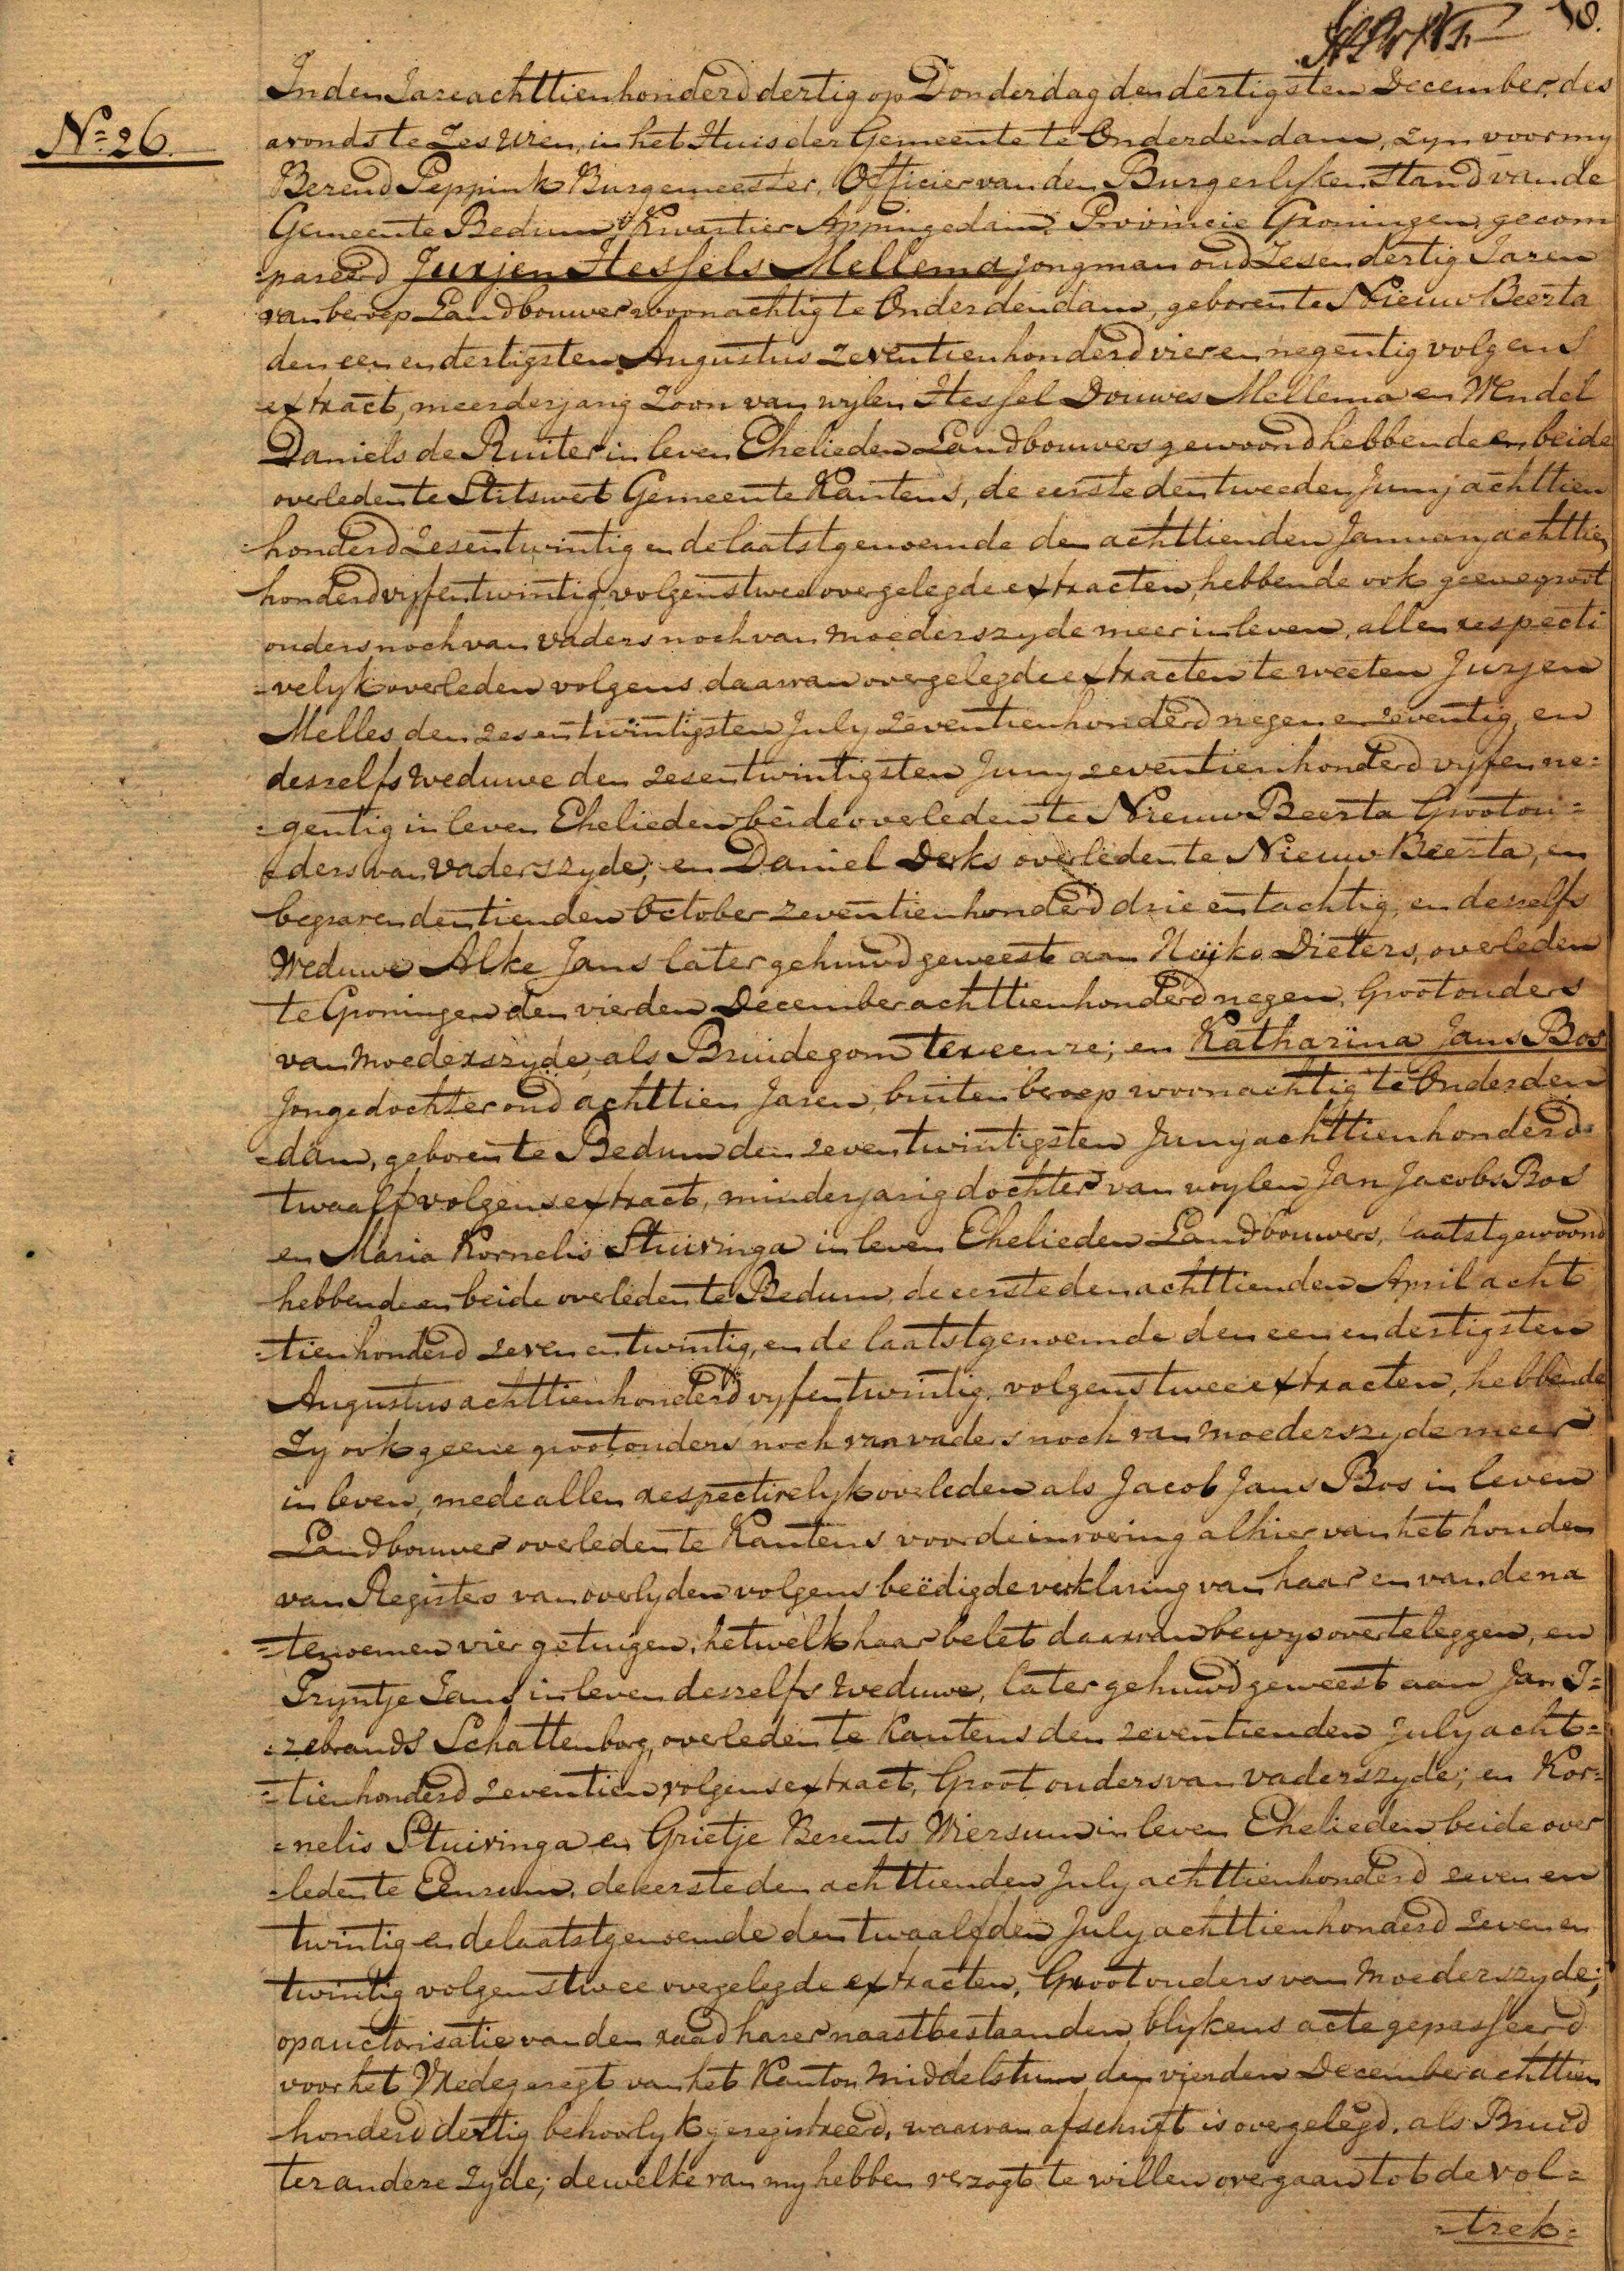 18.
N=o 26.
In den Jare achttienhonderd dertig op Donderdag den dertigsten December des
avonds te zes uren, in het Huis der Gemeente te Onderdendam, zyn voor my
Berend Peppink Burgemeester, Officier van den Burgerlyken Stand van de
Gemeente Bedum Kwartier Appingedam, Provincie Groningen, gecom
=pareerd Jurjen Hessels Mellema jongman oud zesendertig Jaren
van beroep Landbouwer woonachtig te Onderdendam, geboren te Nieuw Beerta
den een en dertigsten Augustus zeventienhonderd vier en negentig volgens
extract, meerderjarig Zoon van wylen Hessel Douwes Mellema en Wendel
Daniels de Ruiter in leven Ehelieden Landbouwers gewoond hebbende en beide
overleden te Stitswert Gemeente Kantens, de eerste den tweeden Juny achttien
=honderd zesentwintig en de laatstgenoemde den achttienden January achttien
honderd vyfentwintig, volgens twee overgelegde extracten, hebbende ook geene groot
ouders noch van vaders noch van moederszyde meer in leven, allen respecti
=velyk overleden volgens daarvan overgelegde extracten te weeten Jurjen
Melles den zesentwintigsten July zeventienhonderd negen en zeventig, en
deszelfs weduwe den zesentwintigsten Juny zeventienhonderd vyfenne=
=gentig in leven Ehelieden beide overleden te Nieuw Beerta Grootou=
ders van vaderszyde; en Daniel Derks overleden te Nieuw Beerta, en
begraven den tienden October zeventienhonderd drie en tachtig, en deszelfs
Weduwe Alke Jans later gehuwd geweest aan Dieters, overleden
te Groningen den vierden December achttienhonderd negen, Grootouders
van moederszyde, als Bruidegom ter eenre; en Katharina Jans Bos
Jongedochter oud achttien Jaren, buiten beroep woonachtig te Onderden
=dam, geboren te Bedum den zeventwintigsten Juny achttienhonderd=
twaalf volgens extract, minderjarig dochter van wylen Jan Jacobs Bos
en Maria Kornelis Stuivinga in leven Ehelieden Landbouwers, laatst gewoond
hebbende en beide overleden te Bedum, de eerste den achttienden April acht
=tienhonderd zeven en twintig, en de laatstgenoemde den een en dertigsten
Augustus achttienhonderd vyfentwintig, volgens twee extracten, hebbende
Zy ook geene grootouders noch van vaders noch van moederszyde meer
in leven, mede allen respectivelyk overleden als Jacob Jans Bos in leven
Landbouwer overleden te Kantens voor de invoering alhier van het houden
van Registers van overlyden volgens beëdigde verklaring van haar en van de na
=tenoemen vier getuigen, hetwelk haar belet daarvan bewys overteleggen, en
Tryntje Jans in leven deszelfs Weduwe, later gehuwd geweest aan Jan I=
=zebrands Schattenborg, overleden te Kantens den zeventienden July acht=
=tienhonderd zeventien, volgens extract, Grootouders van vaderszyde; en Kor=
=nelis Stuivinga en Grietje Berents Wiersum in leven Ehelieden beide over
=leden te Eenrum, de eerste den achttienden July achttienhonderd zeven en
twintig en de laatstgenoemde den twaalfden July achttienhonderd zeven en
twintig volgens twee overgelegde extracten, Grootouders van Moederszyde;
op auctorisatie van den raad harer naastbestaanden, blykens acte gepasseerd
voor het Vredegeregt van het Kanton Middelstum den vierden December achttien
honderd dertig behoorlyk geregistreerd, waarvan afschrift is overgelegd, als Bruid
ter andere zyde; dewelke van my hebben verzogt te willen overgaan tot de vol=
=trek=